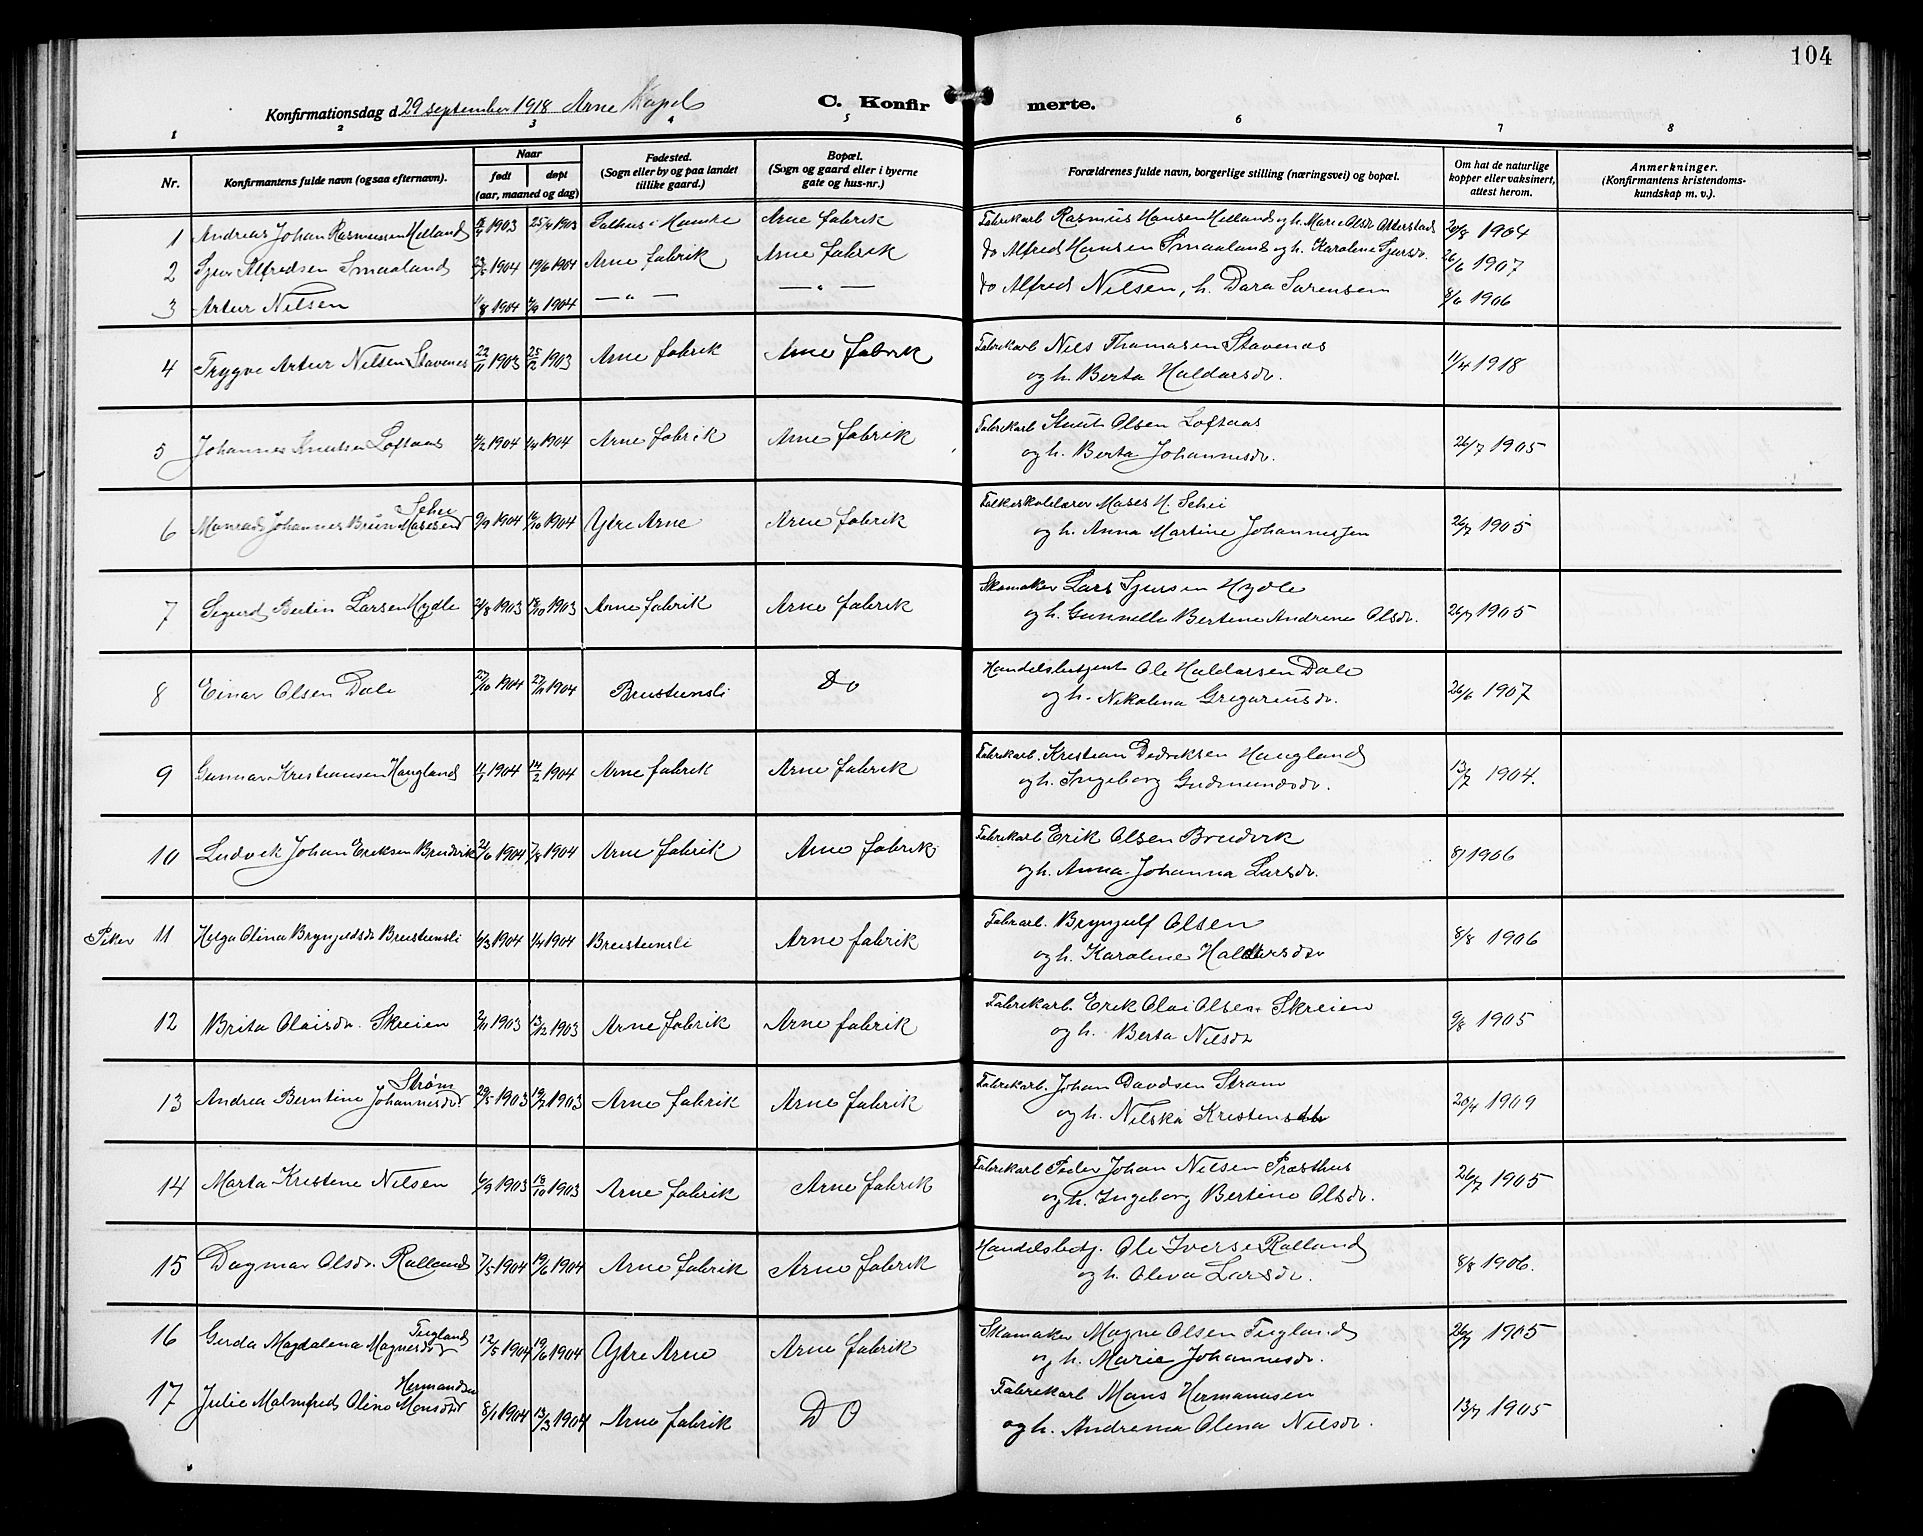 104
Konfirmationsdag d. 29 september 1918 Arne Kapel
C. Konfirmerte.
1 2 3 4 5 6 7 8
Nr. Konfirmantens fulde navn (ogsaa efternavn). Naar født døpt (aar, maaned og dag) Fødested. (Sogn eller by og paa landet tillike gaard.) Bopæl. (Sogn og gaard eller i byerne gate og hus-nr.) Forældrenes fulde navn, borgerlige stilling (næringsvei) og bopæl. Om hat de naturlige kopper eller vaksinert, attest herom. Anmerkninger. (Konfirmantens kristendoms-kundskap m. v.).
1 Andreas Johan Rasmussen Helland 1903 25/4 1903 Salhus i Hamre Arne fabrik Fabrikarb Rasmus Hansen Helland og h. Marie Olsdr. 20/8 1904
2 Sjur Alfredsen Smaaland 23/5 1904 19/6 1904 Arne fabrik Arne fabrik do Alfred Hansen Smaaland og h. Karoline Sjursdr. 26/6 1907
3 Artur Nilsen 1/8 1904 1904 — " — — " — do Alfred Nilsen, h. Dora Sørensen 8/6 1906
4 Trygve Artur Nilsen Stavenes 22/11 1903 25/12 1903 Arne fabrik Arne fabrik Fabrikarb Nils Thomasen Stavenes
og h. Berta Haldorsdr. 11/4 1918
5 Johannes Knutsen Loftaas 1904 1/4 1904 Arne fabrik Arne fabrik Fabrikarb Knut Olsen Loftaas
og h. Berta Johannesdr. 26/7 1905
6 Monrad Johannes Brun Mosesen Schei 9/9 1904 16/10 1904 Ytre Arne Arne fabrik Folkeskolelærer Moses M. Schei
og h. Anna Martine Johannessen 26/7 1905
7 Sigurd Bertin Larsen Hydle 2/8 1903 18/10 1903 Arne fabrik Arne fabrik Skomaker Lars Sjursen Hydle
og h. Gunnelle Bertine Andrine Olsdr. 26/7 1905
8 Einar Olsen Dale 23/10 1904 27/11 1904 Breistensli Do Handelsbetjent Ole Haldorsen Dale
og h. Nikolina Gregoriusdr. 26/6 1907
9 Gunnar Kristiansen Haugland 11/1 1904 14/2 1904 Arne fabrik Arne fabrik Fabrikarb. Kristian Didriksen Haugland
og h. Ingeborg Gudmundsdr. 13/7 1904.
10 Ludvik Johan Eriksen Brudvik 21/6 1904 7/8 1904 Arne fabrik Arne fabrik Fabrikarb Erik Olsen Brudvik
og h. Anna Johanna Larsdr. 1906
Piker 11 Helga Olina Bryngelsdr Breistensli 6/3 1904 1/4 1904 Breistensli Arne fabrik Fabrarb. Bryngulf Olsen
og h. Karoline Haldorsdr 8/8 1906
12 Brita Olaisdr. Skreien 2/11 1903 13/12 1903 Arne fabrik Arne fabrik Fabrikarb. Erik Olai Olsen Skreien
og h. Berta Nilsdr 9/8 1905
13 Andrea Berntine Johannesdr Strøm 29/5 1903 19/7 1903 Arne fabrik Arne fabrik Fabrikarb. Johan Davidsen Strøm
og h. Nilska Kristensdtr 20/4 1909
14 Marta Kristine Nilsen 6/9 1903 18/10 1903 Arne fabrik Arne fabrik Fabrikarb Peder Johan Nilsen Præsthus
og h. Ingeborg Bertine Olsdr. 26/7 1905
15 Dagmar Olsdr. Rolland 7/5 1904 19/6 1904 Arne fabrik Arne fabrik Handelsbetj. Ole Iversen Rolland
og h. Oliva Larsdr. 8/8 1906.
16 Gerda Magdalena Magnesdr Tugland 12/5 1904 19/6 1904 Ytre Arne Arne fabrik Skomaker Magne Olsen Tugland
og h. Marie Johannesdr. 26/7 1905
17 Julie Malmfred Oline Monsdtr Hermandsen 8/1 1904 13/3 1904 Arne fabrik DO Fabrikarb Mons Hermansen
og h. Andrema Olena Nilsdr. 13/7 1905